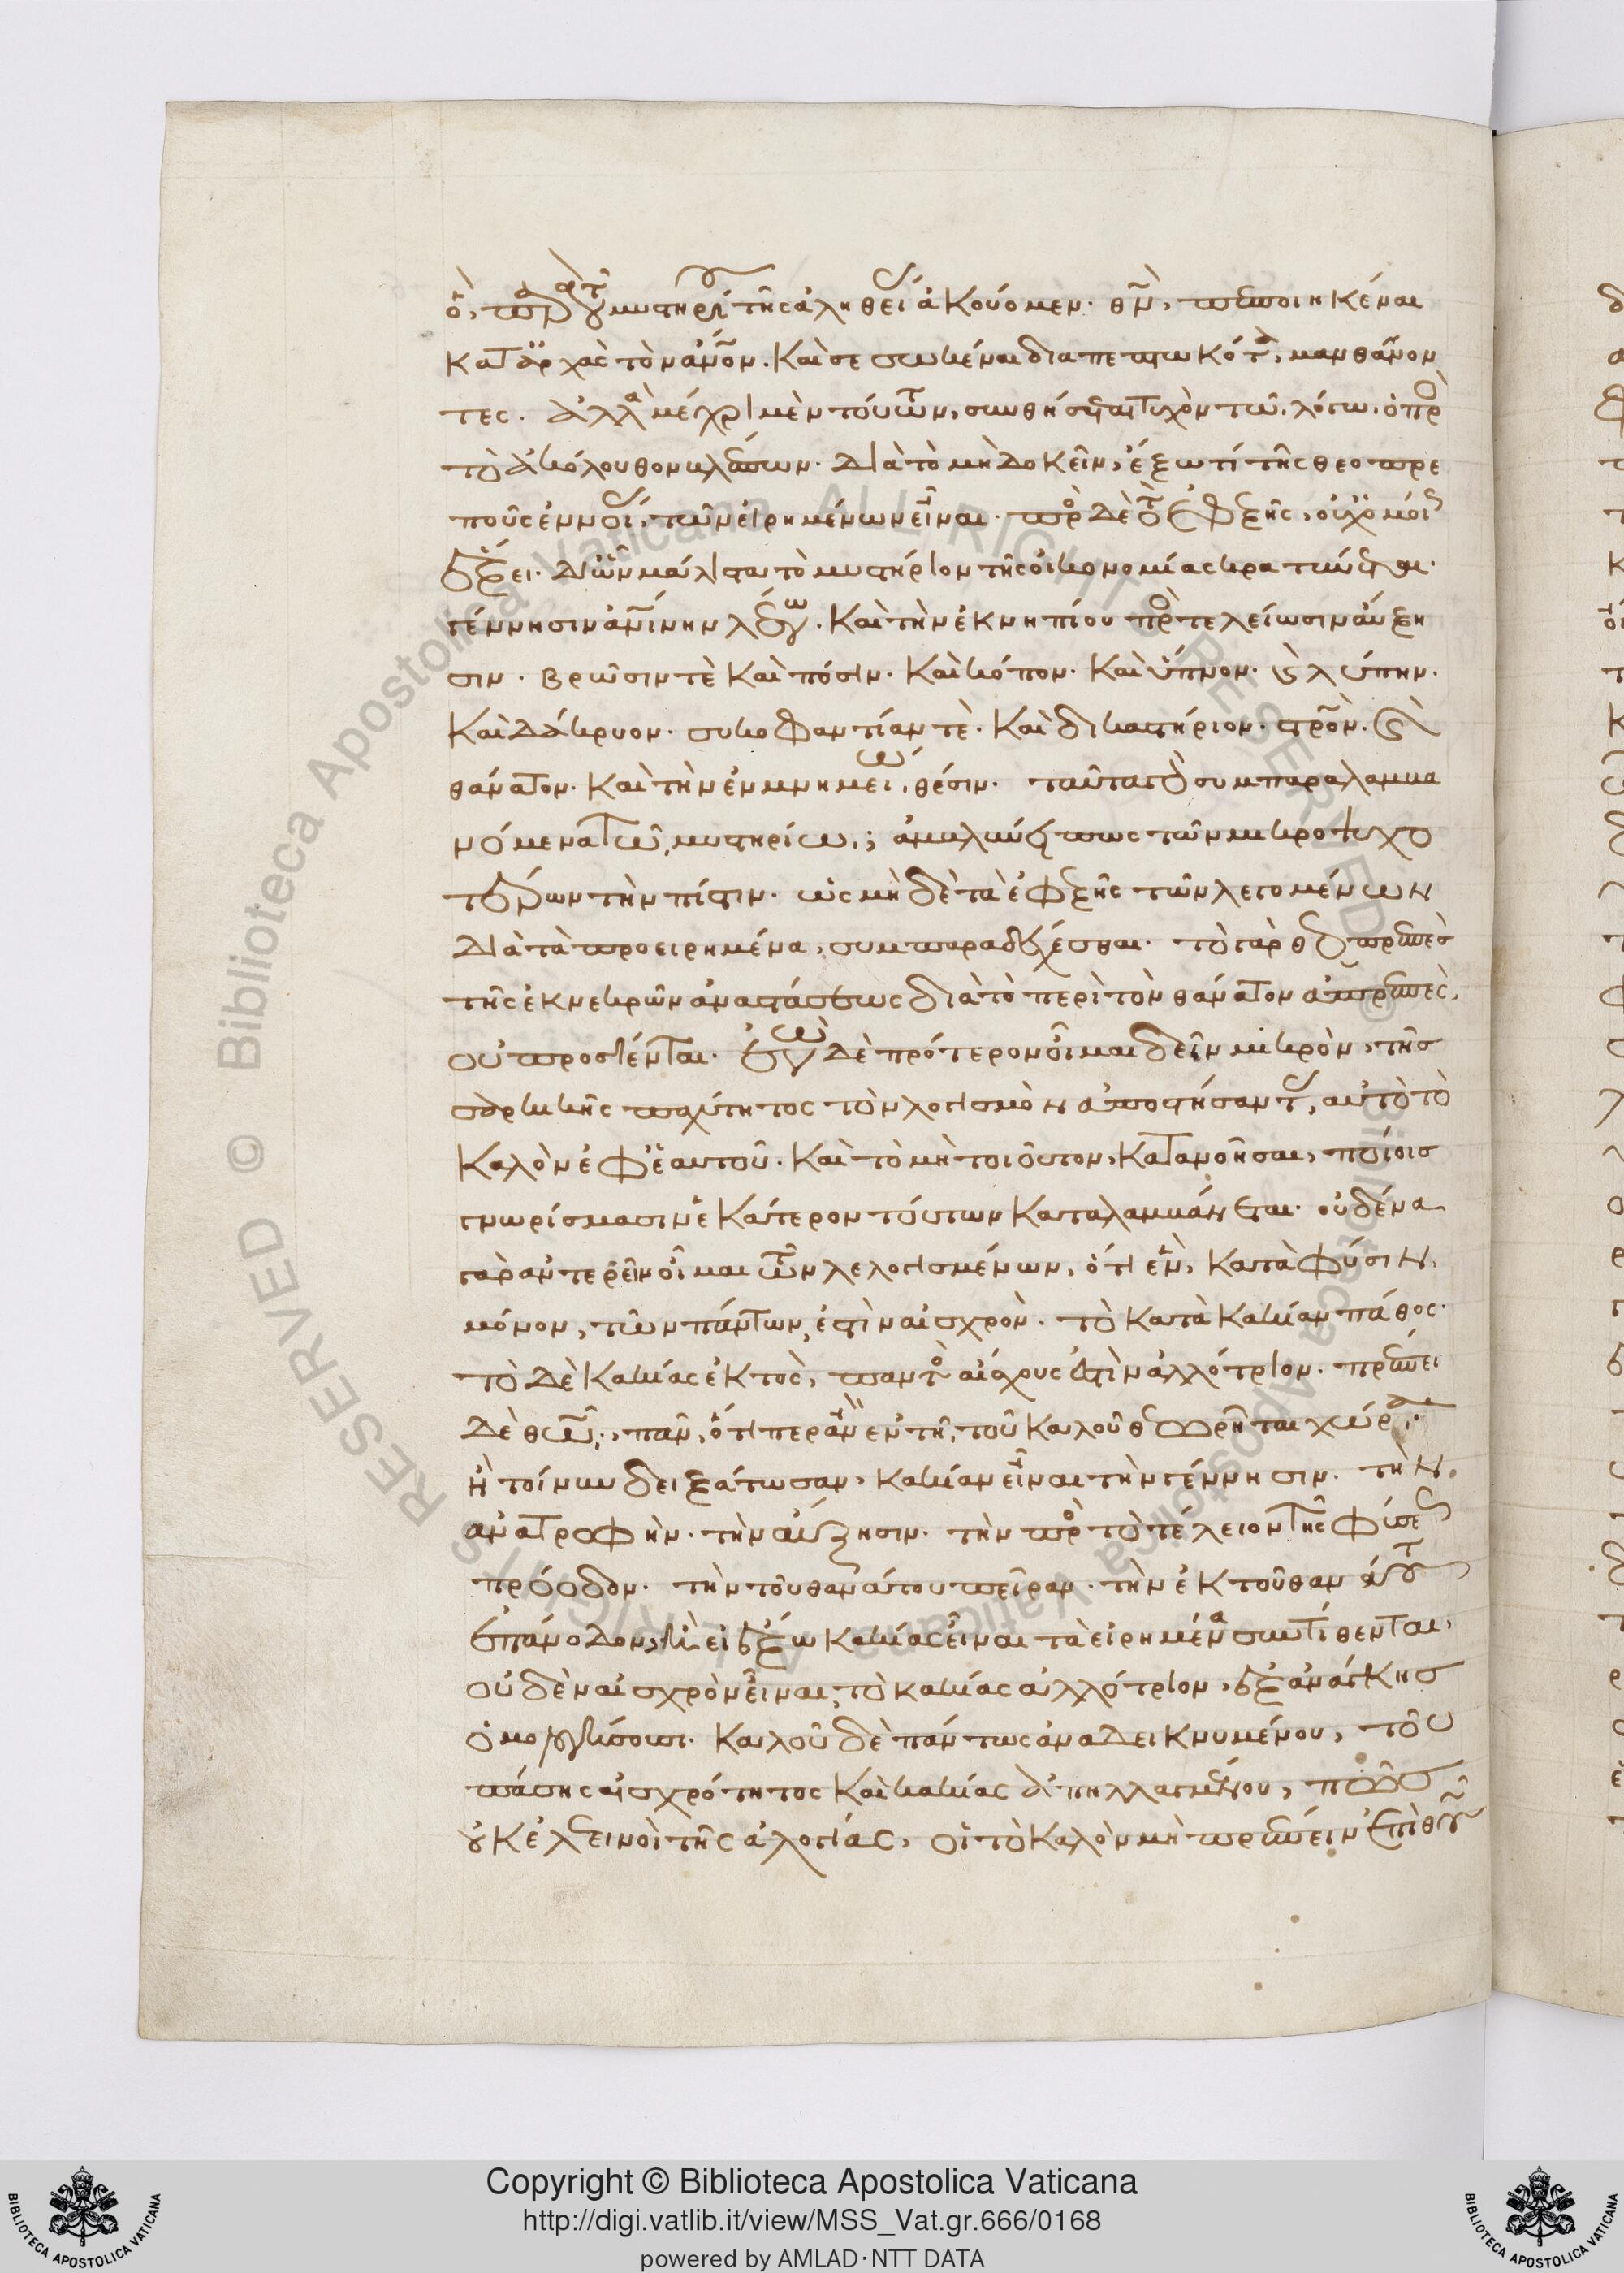 ὃ, παρὰ τοῦ μυστηρίου τῆς ἀληθείας ἀκούομεν. θν̅, πεποιηκέναι
κατ' ἀρχὰς τὸν ἄνον. καὶ σεσωκέναι διαπεπτωκότα, μανθάνον
τες. ἀλλὰ μέχρι μὲν τούτων, συνθήσεται τυχὸν τῶ λόγω ὁ πρὸς
τὸ ἀκόλουθον βλέπων. διὰ τὸ μὴ δοκεῖν, ἔξω τί τῆς θεοπρε
ποῦς ἐννοίας, τῶν εἰρημένων εἶναι. πρὸς δὲ τὰ ἐφεξῆς, οὐχ ὁμοίως
ἕξει. δι' ὧν μάλιστα τὸ μυστήριον τῆς οἰκονομίας κρατύνεται.
γέννησιν ἀνίνην λέγω. καὶ τὴν ἐκ νηπίου πρὸς τελείωσιν αὔξη
σιν. βρῶσιν τὲ καὶ πόσιν. καὶ κόπον. καὶ ὕπνον. καὶ λύπην.
καὶ δάκρυον. συκοφαντίαν τὲ. καὶ δικαστήριον. στρον. καὶ
θάνατον. καὶ τὴν ἐν μνημείω θέσιν. ταῦτα γὰρ συμπαραλαμβα
νόμενα τῶ μυστηρίω, ἀμβλύνει πως τῶν μικροψυχο
τέρων τὴν πίστιν. ὡς μηδὲ τὰ ἐφεξῆς τῶν λεγομένων
διὰ τὰ προειρημένα, συμπαραδέχεσθαι. τὸ γὰρ θεοπρεπὲς
τῆς ἐκ νεκρῶν ἀναστάσεως διὰ τὸ περὶ τὸν θάνατον ἀπρεπὲς,
οὐ προσίενται. ἐγὼ δὲ πρότερον οἶμαι δεῖν μικρὸν, τῆς
σαρκικῆς παχύτητος τὸν λογισμὸν ἀποστήσαντας, αὐτὸ τὸ
καλὸν ἐφ' ἑαυτοῦ. καὶ τὸ μὴ τοιοῦτον, κατανοῆσαι, ποίοις
γνωρίσμασιν ἑκάτερον τούτων καταλαμβάνεται. οὐδένα
γὰρ ἀντερεῖν οἶμαι τῶν λελογισμένων, ὅτι ἓν, κατὰ φύσιν
μόνον, τῶν πάντων, ἐστὶν αἰσχρὸν. τὸ κατὰ κακίαν πάθος.
τὸ δὲ κακίας ἐκτὸς, παντὸς αἴσχους ἐστὶν ἀλλότριον. πρέπει
δὲ θω, πᾶν, ὅτιπερ ἂν ἐν τῆ τοῦ καλοῦ θεωρῆται χώρα.
ἢ τοίνυν δειξάτωσαν, κακίαν εἶναι τὴν γέννησιν. τὴν
ἀνατροφὴν. τὴν αὔξησιν. τὴν πρὸς τὸ τέλειον τῆς φύσεως
πρόοδον. τὴν τοῦ θανάτου πεῖραν. τὴν ἐκ τοῦ θανάτου
ἐπάνοδον, ἢ εἰ ἔξω κακίας εἶναι τὰ εἰρημένα συντίθενται,
οὐδὲν αἰσχρὸν εἶναι, τὸ κακίας ἀλλότριον, ἐξ ἀνάγκης
ὁμολογήσουσι. καλοῦ δὲ πάντως ἀναδεικνυμένου, τοῦ
πάσης αἰσχρότητος καὶ κακίας ἀπηλλαγμένου, πῶς
οὐκ ἐλεεινοὶ τῆς ἀλογίας, οἱ τὸ καλὸν μὴ πρέπειν ἐπὶ θυ
Copyright © Biblioteca Apostolica Vaticana
http://digi.vatlib.it/view/MSS_Vat.gr.666/0168
powered by AMLAD·NTT DATA
BIBLIOTECA APOSTOLICA VATICANA
BIBLIOTECA APOSTOLICA VATICANA